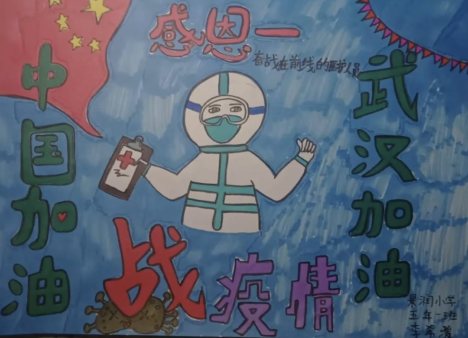 感恩一
奋战在前线的医护人员
中国加油
武汉加油
战疫情
小学
五年一班
李